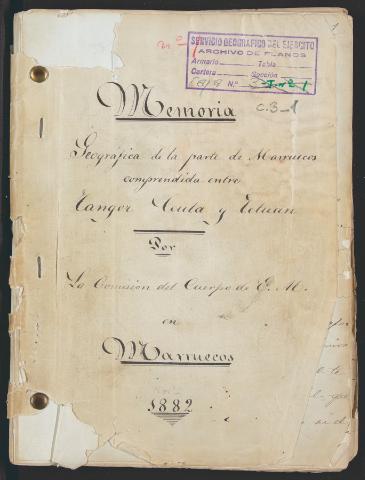 SERVICIO GEOGRAFICO DEL EJERCITO
ARCHIVO DE PLANOS
Armario Tabla
Cartera Sección
Nº
C.3-1
Memoria
Geográfica de la parte de Marruecos
comprendida entre
Tanger Ceuta y Tetuan
Por
La Comisión del Cuerpo de E. M.
en
Marruecos
1882